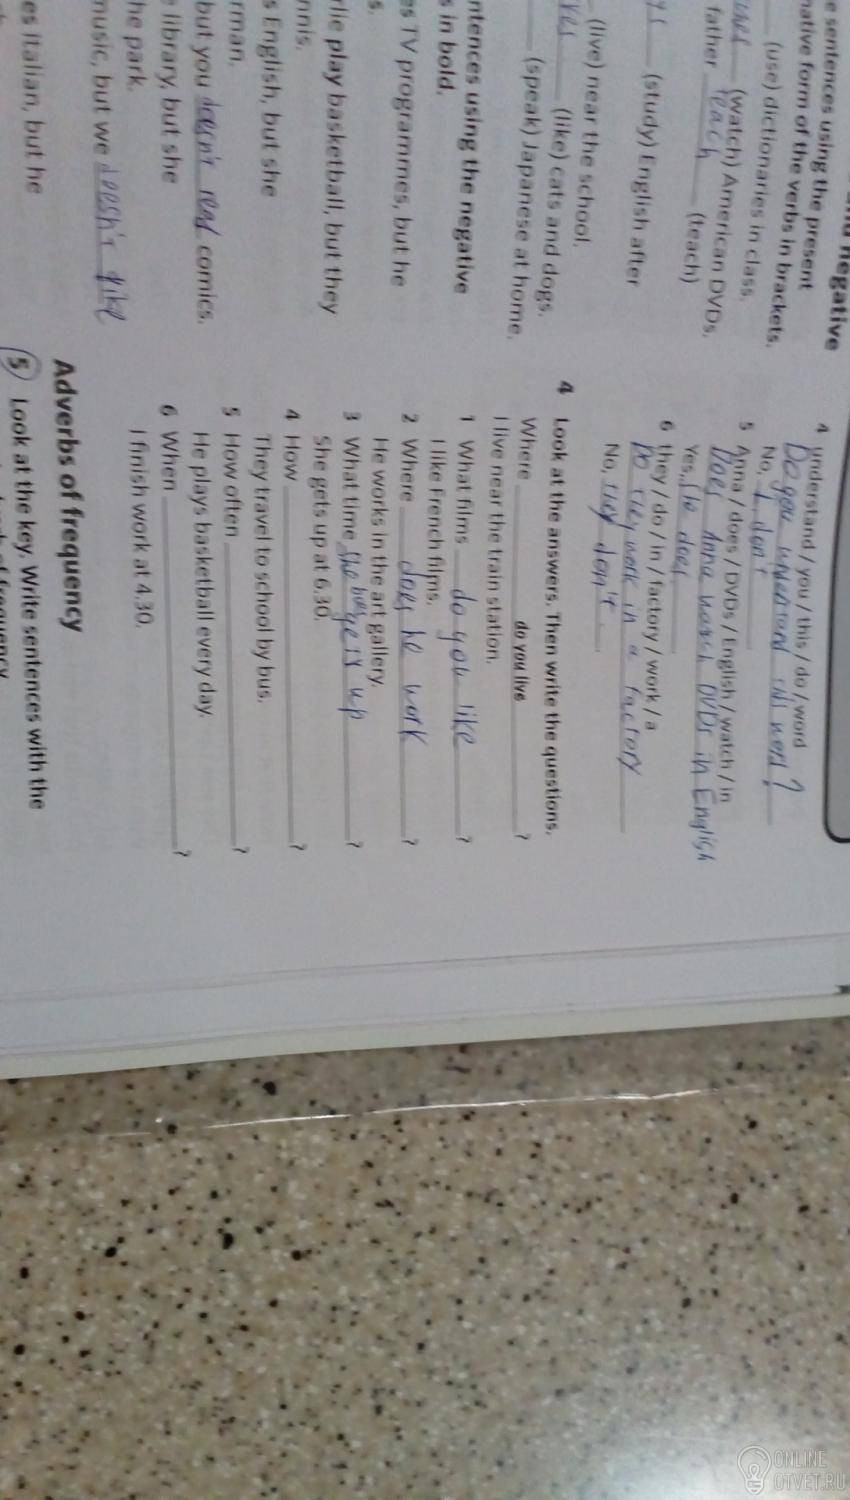 and negative
e sentences using the present
native form of the verbs in brackets.
(use) dictionaries in class.
(watch) American DVDs.
father teach (teach)
(study) English after
(live) near the school.
(like) cats and dogs.
(speak) Japanese at home.
ntences using the negative
s in bold.
es TV programmes, but he
s.
rlie play basketball, but they
nnis.
s English, but she
rman.
but you doesn't read comics.
e library, but she
he park.
music, but we doesn't like
es Italian, but he
4 understand / you / this / do / word
Do you understand this word?
No, I don't
5 Anna / does / DVDs / English / watch / in
Does Anna watch DVDs in English
Yes, she does
6 they / do / in / factory / work / a
Do they work in a factory
No, they don't
4 Look at the answers. Then write the questions.
Where do you live ?
I live near the train station.
1 What films do you like ?
I like French films.
2 Where does he work ?
He works in the art gallery.
3 What time she get up ?
She gets up at 6.30.
4 How ?
They travel to school by bus.
5 How often ?
He plays basketball every day.
6 When ?
I finish work at 4.30.
Adverbs of frequency
5 Look at the key. Write sentences with the
ONLINE
OTVET.RU